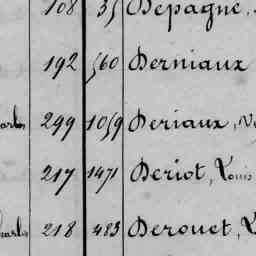 108 35 Depagne,
192 560 Derniaux
299 1059 Deriaux,
217 1471 Deriot, Louis
218 483 Derouet,